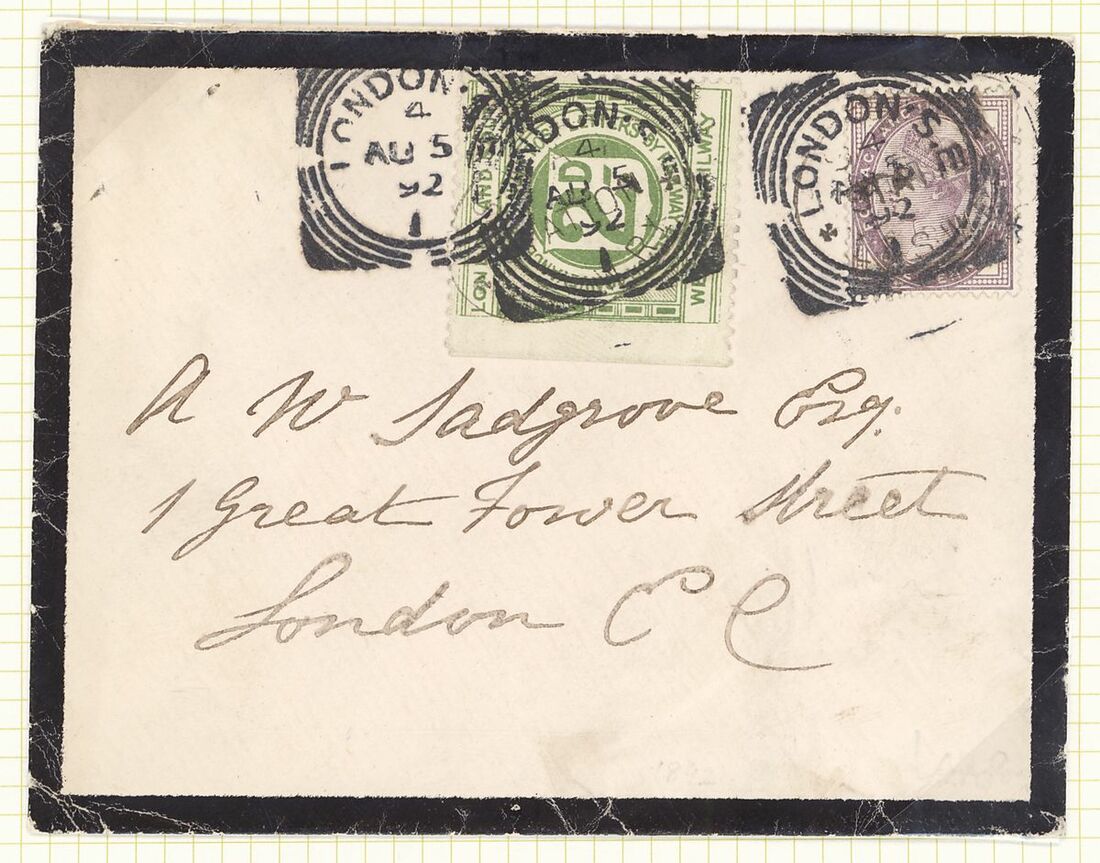 LONDON.
4
AU 5
92
1
LONDON.S.E
4
AU 5
92
1
2D
LONDON.S.E
92
1
A W Sadgrove Esq.
1 Great Tower Street
London E C